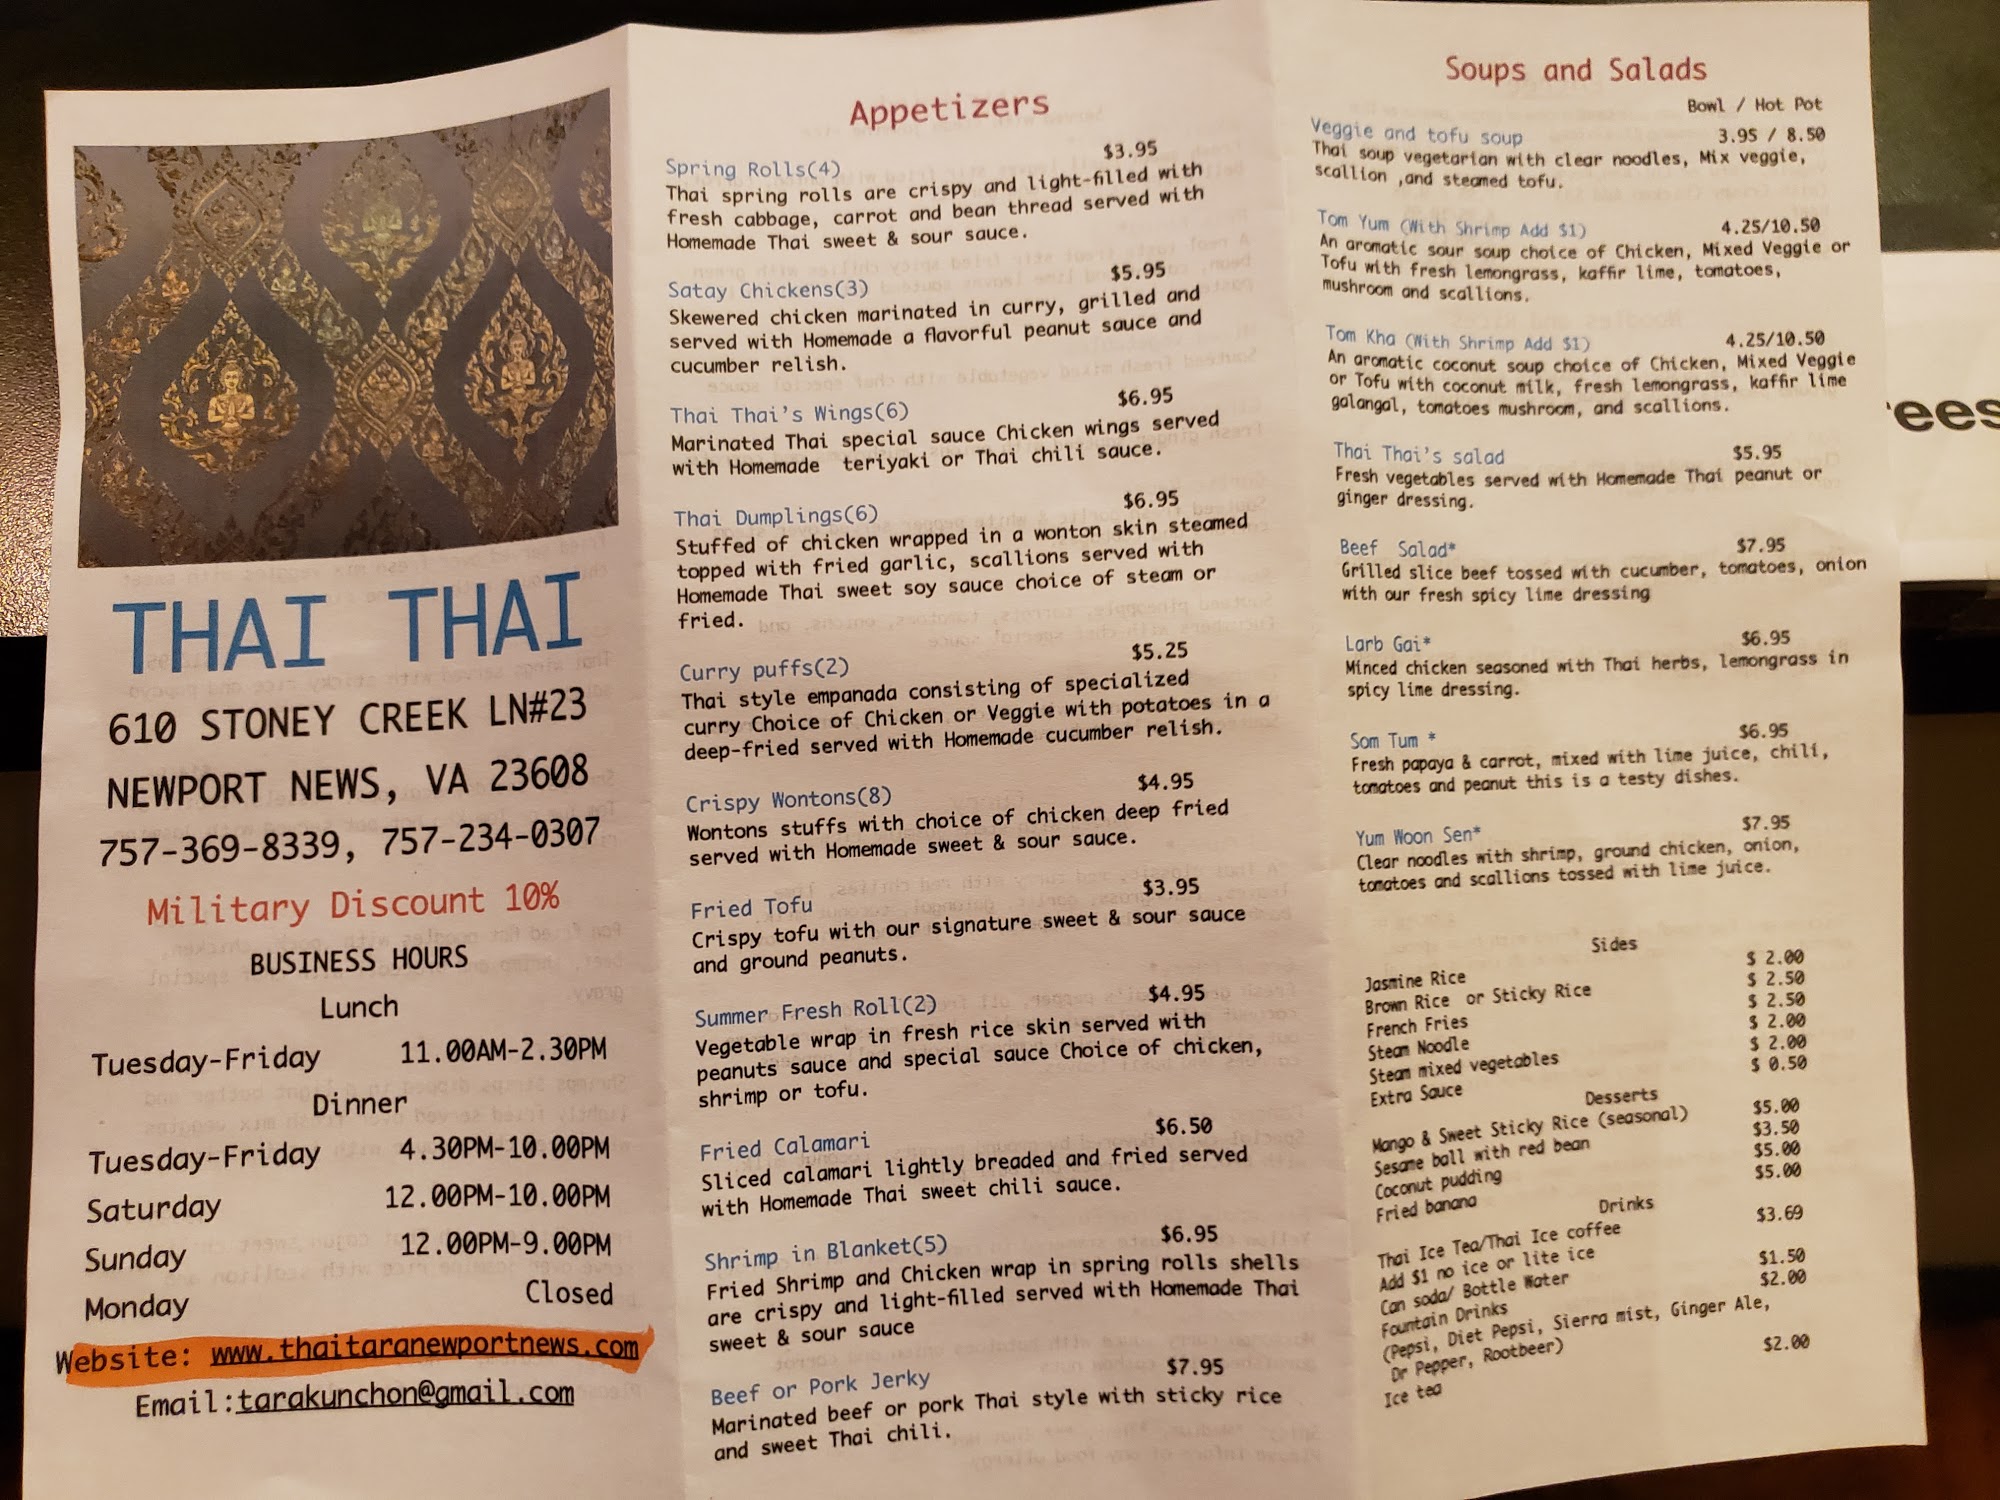 THAI THAI
610 STONEY CREEK LN#23
NEWPORT NEWS, VA 23608
757-369-8339, 757-234-0307
Military Discount 10%
BUSINESS HOURS
Lunch
Tuesday-Friday 11.00AM-2.30PM
Dinner
Tuesday-Friday 4.30PM-10.00PM
Saturday 12.00PM-10.00PM
Sunday 12.00PM-9.00PM
Monday Closed
Website: www.thaitaranewportnews.com
Email:tarakunchon@gmail.com
Appetizers
Spring Rolls(4) $3.95
Thai spring rolls are crispy and light-filled with
fresh cabbage, carrot and bean thread served with
Homemade Thai sweet & sour sauce.
Satay Chickens(3) $5.95
Skewered chicken marinated in curry, grilled and
served with Homemade a flavorful peanut sauce and
cucumber relish.
Thai Thai's Wings(6) $6.95
Marinated Thai special sauce Chicken wings served
with Homemade teriyaki or Thai chili sauce.
Thai Dumplings(6) $6.95
Stuffed of chicken wrapped in a wonton skin steamed
topped with fried garlic, scallions served with
Homemade Thai sweet soy sauce choice of steam or
fried.
Curry puffs(2) $5.25
Thai style empanada consisting of specialized
curry Choice of Chicken or Veggie with potatoes in a
deep-fried served with Homemade cucumber relish.
Crispy Wontons(8) $4.95
Wontons stuffs with choice of chicken deep fried
served with Homemade sweet & sour sauce.
Fried Tofu $3.95
Crispy tofu with our signature sweet & sour sauce
and ground peanuts.
Summer Fresh Roll(2) $4.95
Vegetable wrap in fresh rice skin served with
peanuts sauce and special sauce Choice of chicken,
shrimp or tofu.
Fried Calamari $6.50
Sliced calamari lightly breaded and fried served
with Homemade Thai sweet chili sauce.
Shrimp in Blanket(5) $6.95
Fried Shrimp and Chicken wrap in spring rolls shells
are crispy and light-filled served with Homemade Thai
sweet & sour sauce
Beef or Pork Jerky $7.95
Marinated beef or pork Thai style with sticky rice
and sweet Thai chili.
Soups and Salads
Bowl / Hot Pot
Veggie and tofu soup 3.95 / 8.50
Thai soup vegetarian with clear noodles, Mix veggie,
scallion ,and steamed tofu.
Tom Yum (With Shrimp Add $1) 4.25/10.50
An aromatic sour soup choice of Chicken, Mixed Veggie or
Tofu with fresh lemongrass, kaffir lime, tomatoes,
mushroom and scallions.
Tom Kha (With Shrimp Add $1) 4.25/10.50
An aromatic coconut soup choice of Chicken, Mixed Veggie
or Tofu with coconut milk, fresh lemongrass, kaffir lime
galangal, tomatoes mushroom, and scallions.
Thai Thai's salad $5.95
Fresh vegetables served with Homemade Thai peanut or
ginger dressing.
Beef Salad* $7.95
Grilled slice beef tossed with cucumber, tomatoes, onion
with our fresh spicy lime dressing
Larb Gai* $6.95
Minced chicken seasoned with Thai herbs, lemongrass in
spicy lime dressing.
Som Tum * $6.95
Fresh papaya & carrot, mixed with lime juice, chili,
tomatoes and peanut this is a testy dishes.
Yum Woon Sen* $7.95
Clear noodles with shrimp, ground chicken, onion,
tomatoes and scallions tossed with lime juice.
Sides
Jasmine Rice $ 2.00
Brown Rice or Sticky Rice $ 2.50
French Fries $ 2.50
Steam Noodle $ 2.00
Steam mixed vegetables $ 2.00
Extra Sauce $ 0.50
Desserts
Mango & Sweet Sticky Rice (seasonal) $5.00
Sesame ball with red bean $3.50
Coconut pudding $5.00
Fried banana $5.00
Drinks
Thai Ice Tea/Thai Ice coffee $3.69
Add $1 no ice or lite ice
Can soda/ Bottle Water $1.50
Fountain Drinks $2.00
(Pepsi, Diet Pepsi, Sierra mist, Ginger Ale,
Dr Pepper, Rootbeer)
Ice tea $2.00
ees